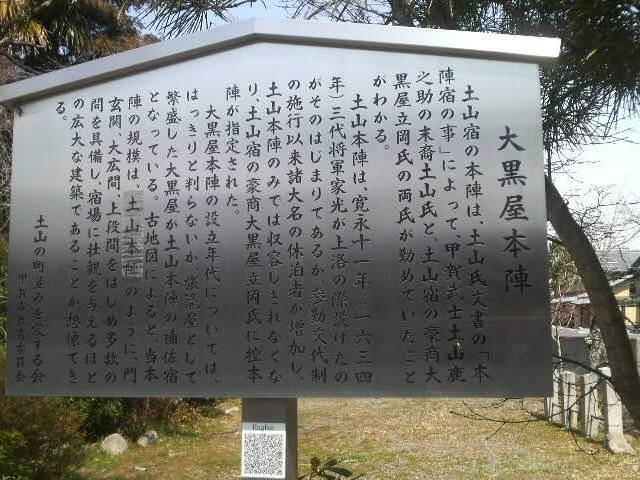 大黒屋本陣
土山宿の本陣は、土山氏文書の「本
陣宿の事」によって、甲賀武士土山鹿
之助の末裔土山氏と、土山宿の豪商大
黒屋立岡氏の両氏が勤めていたこと
がわかる。
土山本陣は、寛永十一年(一六三四
年)三代将軍家光が上洛の際設けたの
がそのはじまりであるが、参勤交代制
の施行以来諸大名の休泊者が増加し、
土山本陣のみでは収容しきれなくな
り、土山宿の豪商大黒屋立岡氏に控本
陣が指定された。
大黒屋本陣の設立年代については、
はっきりと判らないが、旅籠屋として
繁盛した大黒屋が土山本陣の補佐宿
となっている。古地図によると、当本
陣の規模は、土山本陣のように、門
玄関、大広間、上段間をはじめ多数の
間を具備し、宿場に壮観を与えるほど
の広大な建築であることが想像でき
る。
土山の町並みを愛する会
甲賀市教育委員会
English